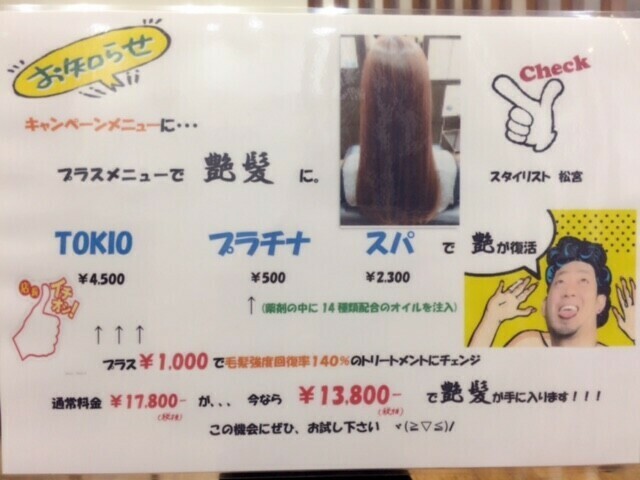 お知らせ
Check
キャンペーンメニューに・・・
プラスメニューで 艶髪 に。
スタイリスト 松宮
TOKIO プラチナ スパ で 艶が復活
¥4.500 ¥500 ¥2.300
店長 イチオシ!
↑ ↑ ↑ ↑ (薬剤の中に14種類配合のオイルを注入)
プラス ¥1.000 で毛髪強度回復率140%のトリートメントにチェンジ
通常料金 ¥17.800- が、、、 今なら ¥13.800- で艶髪が手に入ります!!!
(税抜) (税抜)
この機会にぜひ、お試し下さい ヾ(≧▽≦)/